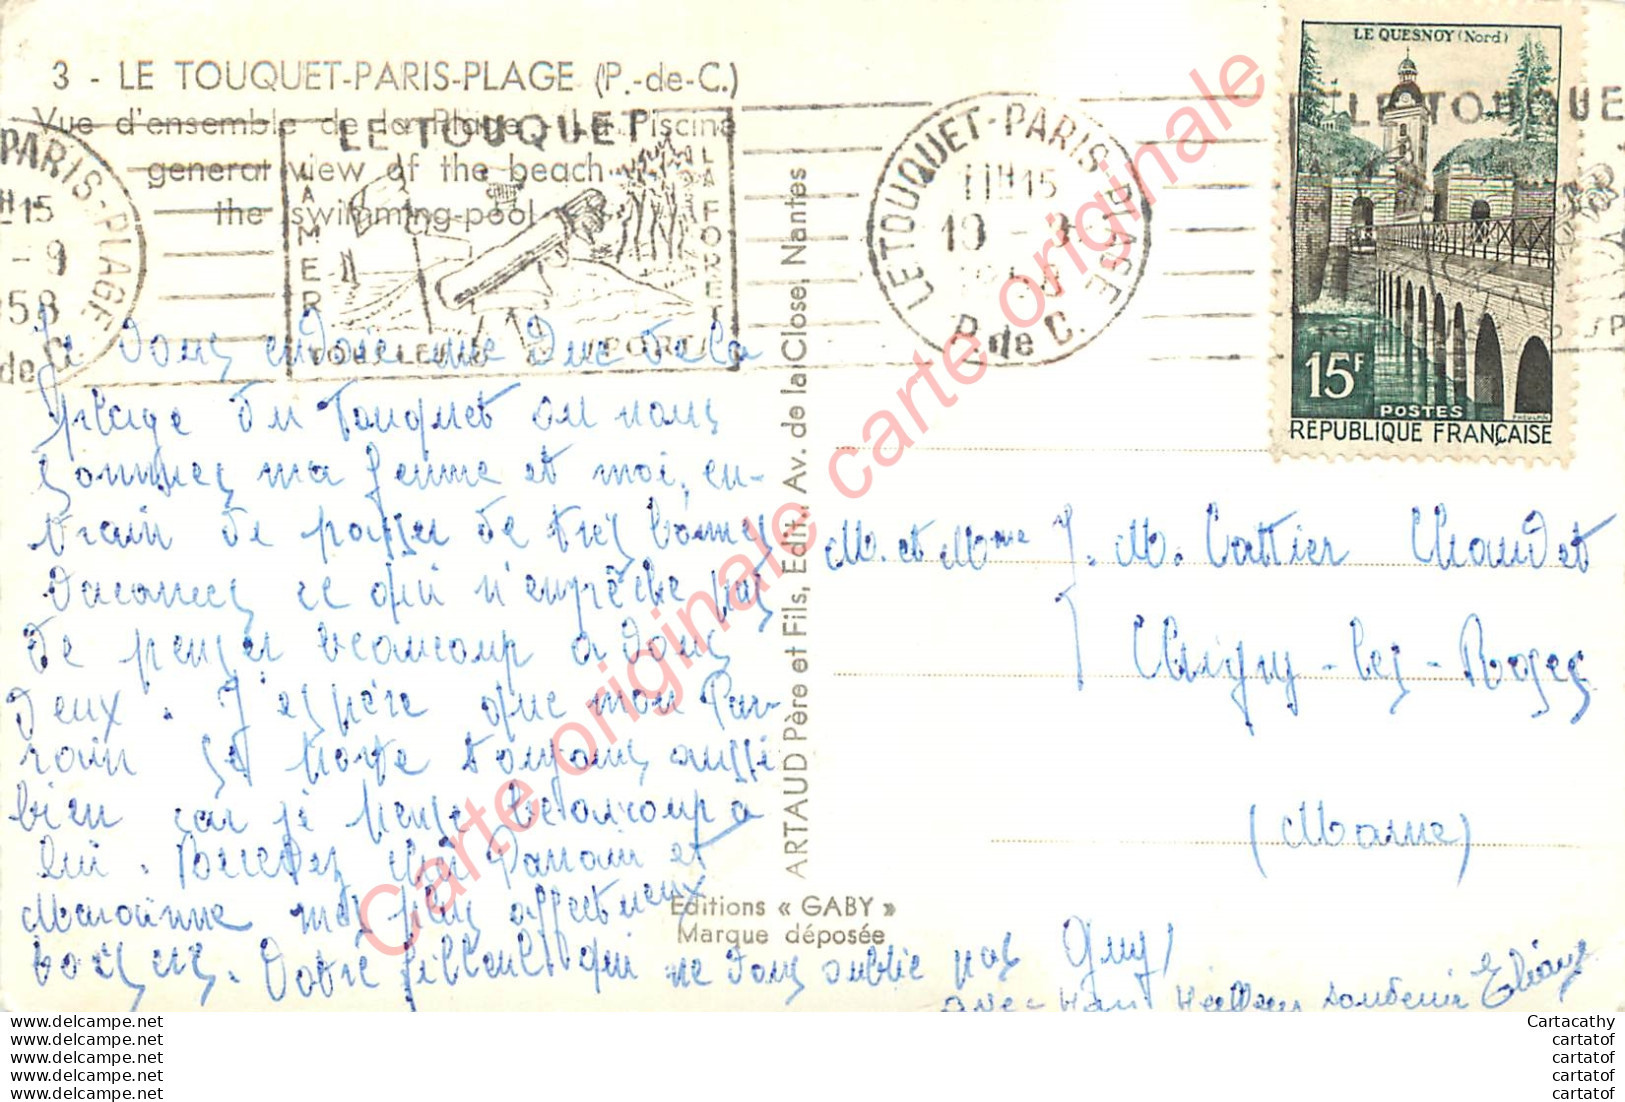 3 - LE TOUQUET-PARIS-PLAGE (P.-de-C.)
Vue d'ensemble de la Plage - La Piscine
general view of the beach
the swimming-pool
LE TOUQUET
LA MER
LA FORET
TOUS LES SPORTS
PARIS-PLAGE
H15
- 9
958
de C.
LE TOUQUET-PARIS-PLAGE
H15
19 - 9
P. de C.
LE TOUQUE
LE QUESNOY (Nord)
15F
POSTES
RÉPUBLIQUE FRANÇAISE
Je vous envoie une vue de la
plage du Touquet ou nous
sommes ma femme et moi, en-
train de passer de très bonnes
vacances ce qui n'empêche pas
de penser beaucoup a vous
deux. J'espère que mon Par-
rain se porte toujours aussi
bien car je pense beaucoup a
lui. Recevez cher Parrain et
Marainne mes plus affectueux
baisers. Votre filleul qui ne vous oublie pas Guy
avec mon meilleur souvenir Eliane
ARTAUD Père et Fils, Edit., Av. de la Close, Nantes
Editions « GABY »
Marque déposée
M. et Mme J. M. Cattier Chaudet
Chigny-les-Roses
(Marne)
Carte originale carte originale
www.delcampe.net
www.delcampe.net
www.delcampe.net
www.delcampe.net
www.delcampe.net
Cartacathy
cartatof
cartatof
cartatof
cartatof